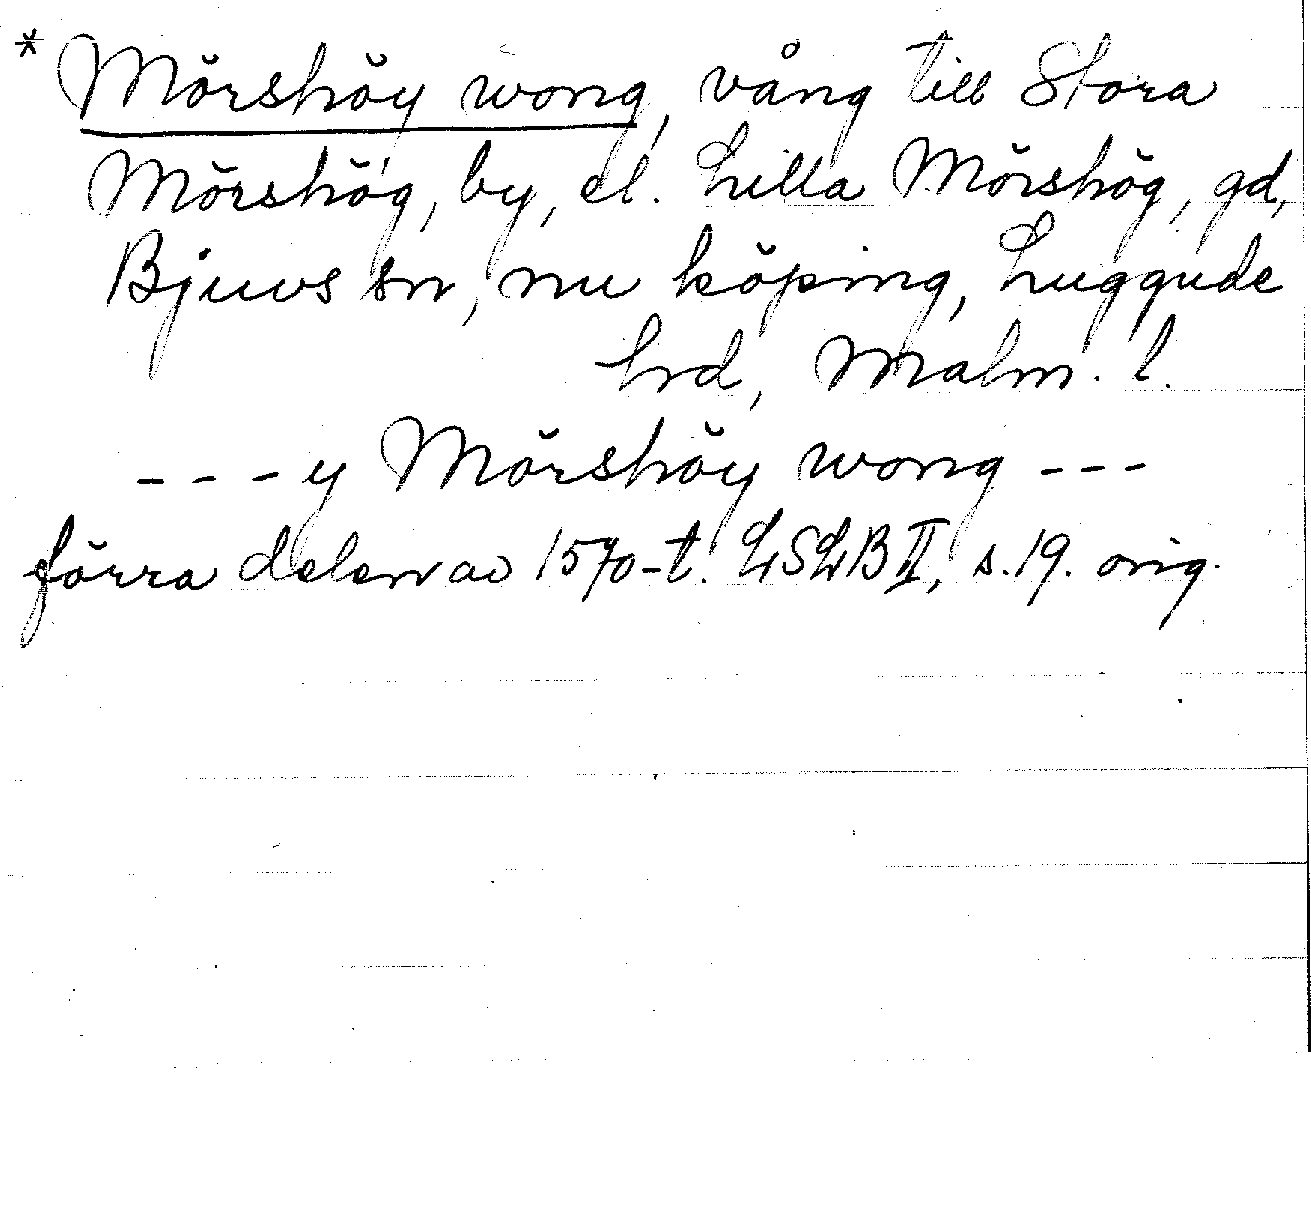 * Mörshöy wong, vång till Stora
Mörshög, by, el. Lilla Mörshög, gd,
Bjuvs sn, nu köping, Luggude
hrd, Malm. l.
- - - y Mörshöy wong - - -
förra delen av 1570-t. LSLB II, s. 19. orig.